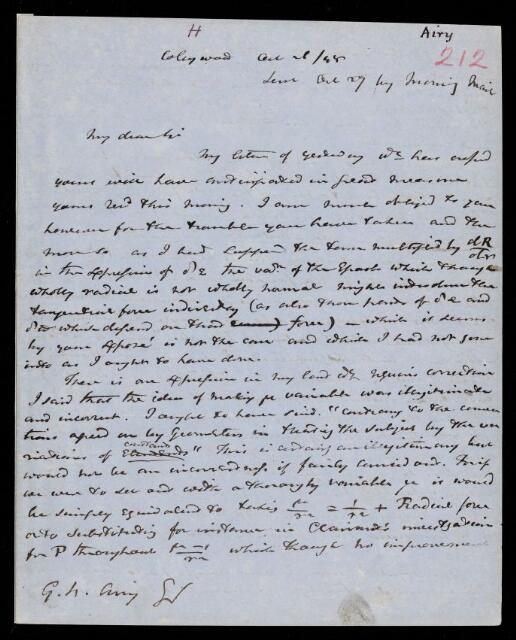 H
Airy
212
Collingwood Oct 28/48
Sent Oct 29 by Morning Mail
My dear Sir
My letter of yesterday wh has crossed
yours will have anticipated in great measure
yours recd this Morning. I am much obliged to you
however for the trouble you have taken and the
more so as I had supposed the term multiplied by dR/dr
in the expression of δε the varn of the Epoch which though
wholly radial is not wholly normal might introduce the
tangential force indirectly (as also those parts of δe and
δω which depend on that force) – which it seems
by your exposé is not the case and which I had not gone
into as I ought to have done.
There is one expression in my last wh requires correction
I said that the idea of making μ variable was illegitimate
and incorrect. I ought to have said. "Contrary to the conven
tions agreed on by Geometers in treating the subject by the va
riations of constants" This is certainly an illegitimacy but
would not be an incorrectness if fairly carried out. For if
we were to set out with a thoroughly variable μ it would
be simply equivalent to taking μ/r2 = 1/r2 + Radial force
or to substituting for instance in Clairaut's investigation
for P throughout μ-1/r2 which though no improvement
G. B. Airy Esq